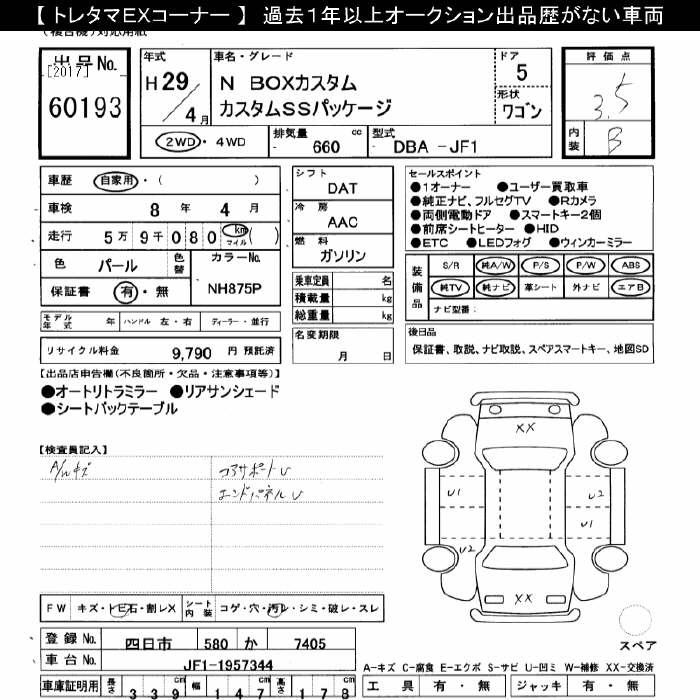 【 トレタマEXコーナー 】 過去1年以上オークション出品歴がない車両
出品No.
[2017]
60193
年式
H 29
4 月
車名・グレード
N BOXカスタム
カスタムSSパッケージ
ドア
5
形状
ワゴン
評価点
3.5
内装
B
2WD・4WD
排気量
660 cc
型式
DBA -JF1
車歴 自家用・( )
車検 8 年 4 月
走行 5万 9千 0 8 0 km マイル ( )
色 パール
色替
カラーNo.
NH875P
保証書 有・無
モデル年式 年 ハンドル 左・右 ディーラー・並行
リサイクル料金 9,790 円 預託済
シフト
DAT
冷房
AAC
燃料
ガソリン
乗車定員 名
積載量 kg
総重量 kg
名変期限
月 日
セールスポイント
●1オーナー ●ユーザー買取車
●純正ナビ、フルセグTV ●Rカメラ
●両側電動ドア ●スマートキー2個
●前席シートヒーター ●HID
●ETC ●LEDフォグ ●ウィンカーミラー
装備品
S/R 純A/W P/S P/W ABS
純TV 純ナビ 革シート 外ナビ エアB
ナビ型番:
後日品
保証書、取説、ナビ取説、スペアスマートキー、地図SD
【出品店申告欄(不良箇所・欠品・注意事項等)】
●オートリトラミラー ●リアサンシェード
●シートバックテーブル
【検査員記入】
A/Wキズ
コアサポートU
エンドパネルU
XX
U1
U2
U1
U2
XX
スペア
FW キズ・トビ石・割レX
シート内装 コゲ・穴・汚レ・シミ・破レ・スレ
登録No. 四日市 580 か 7405
車台No. JF1-1957344
車庫証明用 長さ 3 3 9 幅 1 4 7 高さ 1 7 8
A-キズ C-腐食 E-エクボ S-サビ U-凹ミ W-補修 XX-交換済
工具 有・無 ジャッキ 有・無